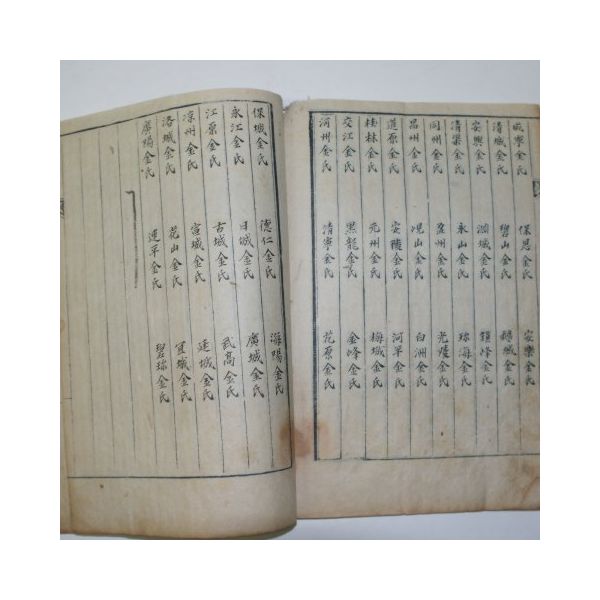 咸寧金氏 保恩金氏 安樂金氏
清城金氏 碧山金氏 鵝城金氏
安興金氏 灝城金氏 鎮峰金氏
清渠金氏 永山金氏 珎海金氏
同州金氏 盈州金氏 光陵金氏
昌州金氏 現山金氏 白洲金氏
道原金氏 安穗金氏 河平金氏
桂林金氏 元州金氏 梅城金氏
交江金氏 黑龍金氏 金峰金氏
河州金氏 清寧金氏 花原金氏
保城金氏 德仁金氏 海陽金氏
永江金氏 日城金氏 廣城金氏
江原金氏 古城金氏 武高金氏
凉州金氏 宣城金氏 延城金氏
洛城金氏 花山金氏 宜城金氏
廣陽金氏 連平金氏 碧珎金氏